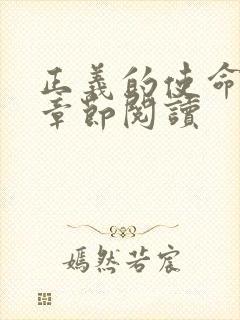 正義的使命
章節閱讀
嫣然若宸